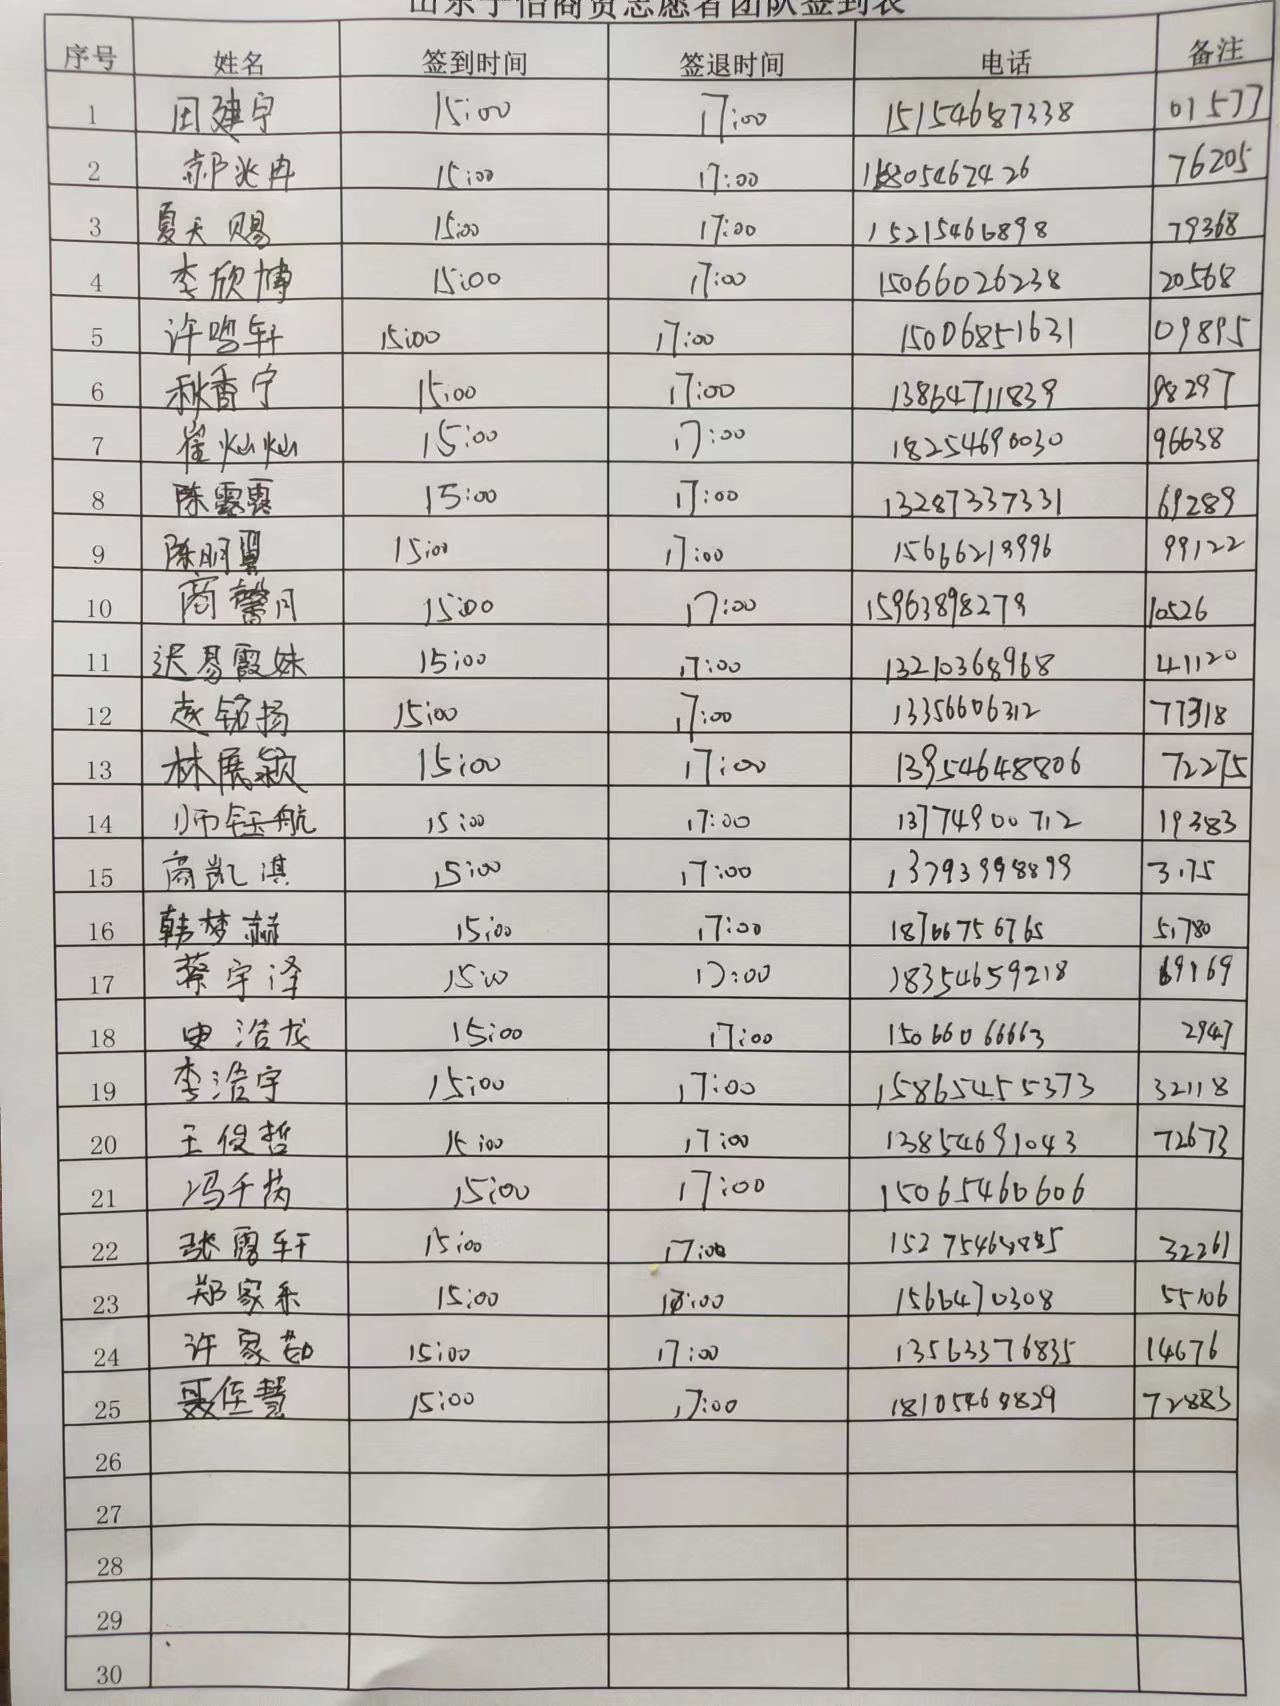 山东子怡商贸志愿者团队签到表
序号 姓名 签到时间 签退时间 电话 备注
1 田建宁 15:00 17:00 15154687338 01577
2 郝兆冉 15:00 17:00 15805462426 76205
3 夏天赐 15:00 17:00 15215466898 79368
4 李欣博 15:00 17:00 15066026238 20568
5 许鸣轩 15:00 17:00 15006851631 09895
6 秋香宁 15:00 17:00 13864711839 98297
7 崔灿灿 15:00 17:00 18254690030 96638
8 陈露露 15:00 17:00 13287337331 69289
9 陈明翼 15:00 17:00 15666219996 99122
10 商馨月 15:00 17:00 15963898279 10526
11 迟易霞妹 15:00 17:00 13210368968 41120
12 赵铭扬 15:00 17:00 13356606312 77318
13 林展颖 15:00 17:00 13954648806 72275
14 师钰航 15:00 17:00 13774900712 19383
15 商凯淇 15:00 17:00 13793998899 3175
16 韩梦赫 15:00 17:00 18766756765 51780
17 蔡宇泽 15:00 17:00 18354659218 69169
18 史浩龙 15:00 17:00 15066066663 2947
19 李浩宇 15:00 17:00 15865455373 32118
20 王俊哲 15:00 17:00 13854691043 72673
21 冯千芮 15:00 17:00 15065460606
22 张雷轩 15:00 17:00 32261
23 郑家乐 15:00 1566470308 55106
24 许家 15:00 17:00 13563376835 14676
25 聂侄慧 15:00 17:00 18105468829 72883
26
27
28
29
30